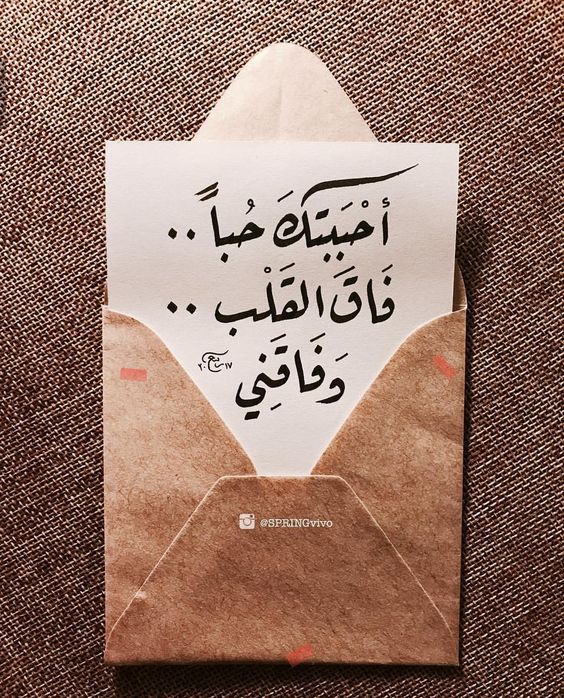 أحْبَبتكَ حُباً ..
فَاقَ القَلْب ..
وَفَاقَنِي
@SPRINGvivo